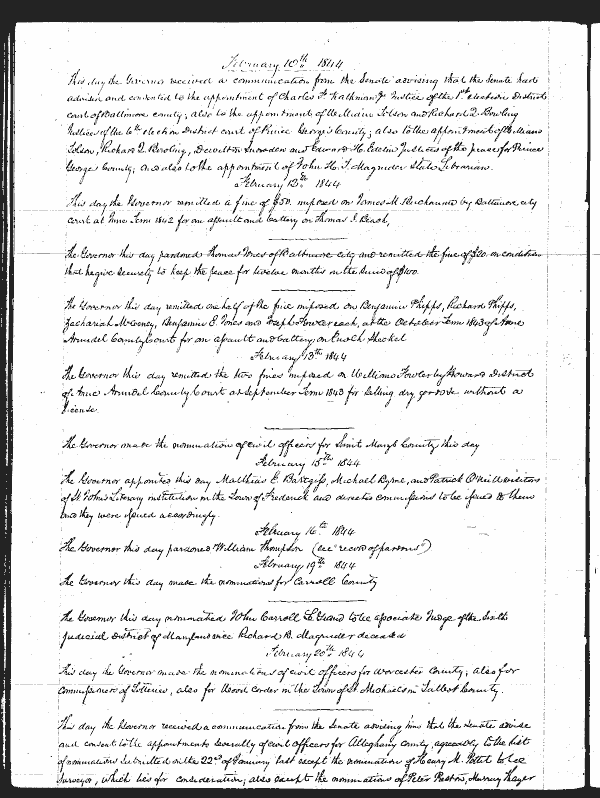 February 10th 1844
This day the Governor received a communication from the Senate advising that the Senate had
advised and consented to the appointment of Charles F. Justice of the 1st election District
court of Baltimore county; also to the appointment of Tolson and Richard L. Bowling
Justices of the 6th election District court of Prince George's County; also to the appointment of
Tolson, Richard L. Bowling, Snowden and Edward H. Justices of the peace for Prince
George's County; and also to the appointment of John H. T. Magruder State Librarian.
February 12th 1844
This day the Governor remitted a fine of $50. imposed on James M. Buchanan by Baltimore city
court at June Term 1842 for an assault and battery on Thomas J. Beach,
The Governor this day pardoned Thomas Jones of Baltimore city and remitted the fine of $20. on condition
that he give security to keep the peace for twelve months in the sum of
The Governor this day remitted one half of the fine imposed on Benjamin Phipps, Richard Phipps,
Zachariah McCeney, Benjamin E. Jones and Joseph Fowler each, at the October Term 1843 of Anne
Arundel County Court for an assault and battery on Enoch
February 13th 1844
The Governor this day remitted the two fines imposed on William Fowler by Howard District
of Anne Arundel County Court at September Term 1843 for selling dry goods without a
license.
The Governor made the nomination of civil officers for Saint Mary's County this day
February 15th 1844
The Governor appointed this day Matthias E. Bartgis, Michael Byrne, and Patrick O'Neill visitors
of St John's Literary institution in the Town of Frederick and directed commissions to be issued to them
and they were issued accordingly.
February 16th 1844
The Governor this day pardoned William Thompson (see "record of pardons")
February 19th 1844
The Governor this day made the nominations for Carroll County
The Governor this day nominated John Carroll LeGrand to be associate Judge of the Sixth
judicial District of Maryland vice Richard B. Magruder deceased
February 20th 1844
This day the Governor made the nominations of civil officers for Worcester County; also for
Commissioners of Lotteries, also for Wood Corder in the Town of St Michaels in Talbot County.
This day the Governor received a communication from the Senate advising him that the Senate advise
and consent to the appointments severally of civil officers for Alleghany county, agreeably to the list
of nominations submitted on the 22nd of January last except the nomination of Henry M. Pettit to be
surveyor, which lies for consideration; also except the nominations of Peter Preston, Murray Thayer